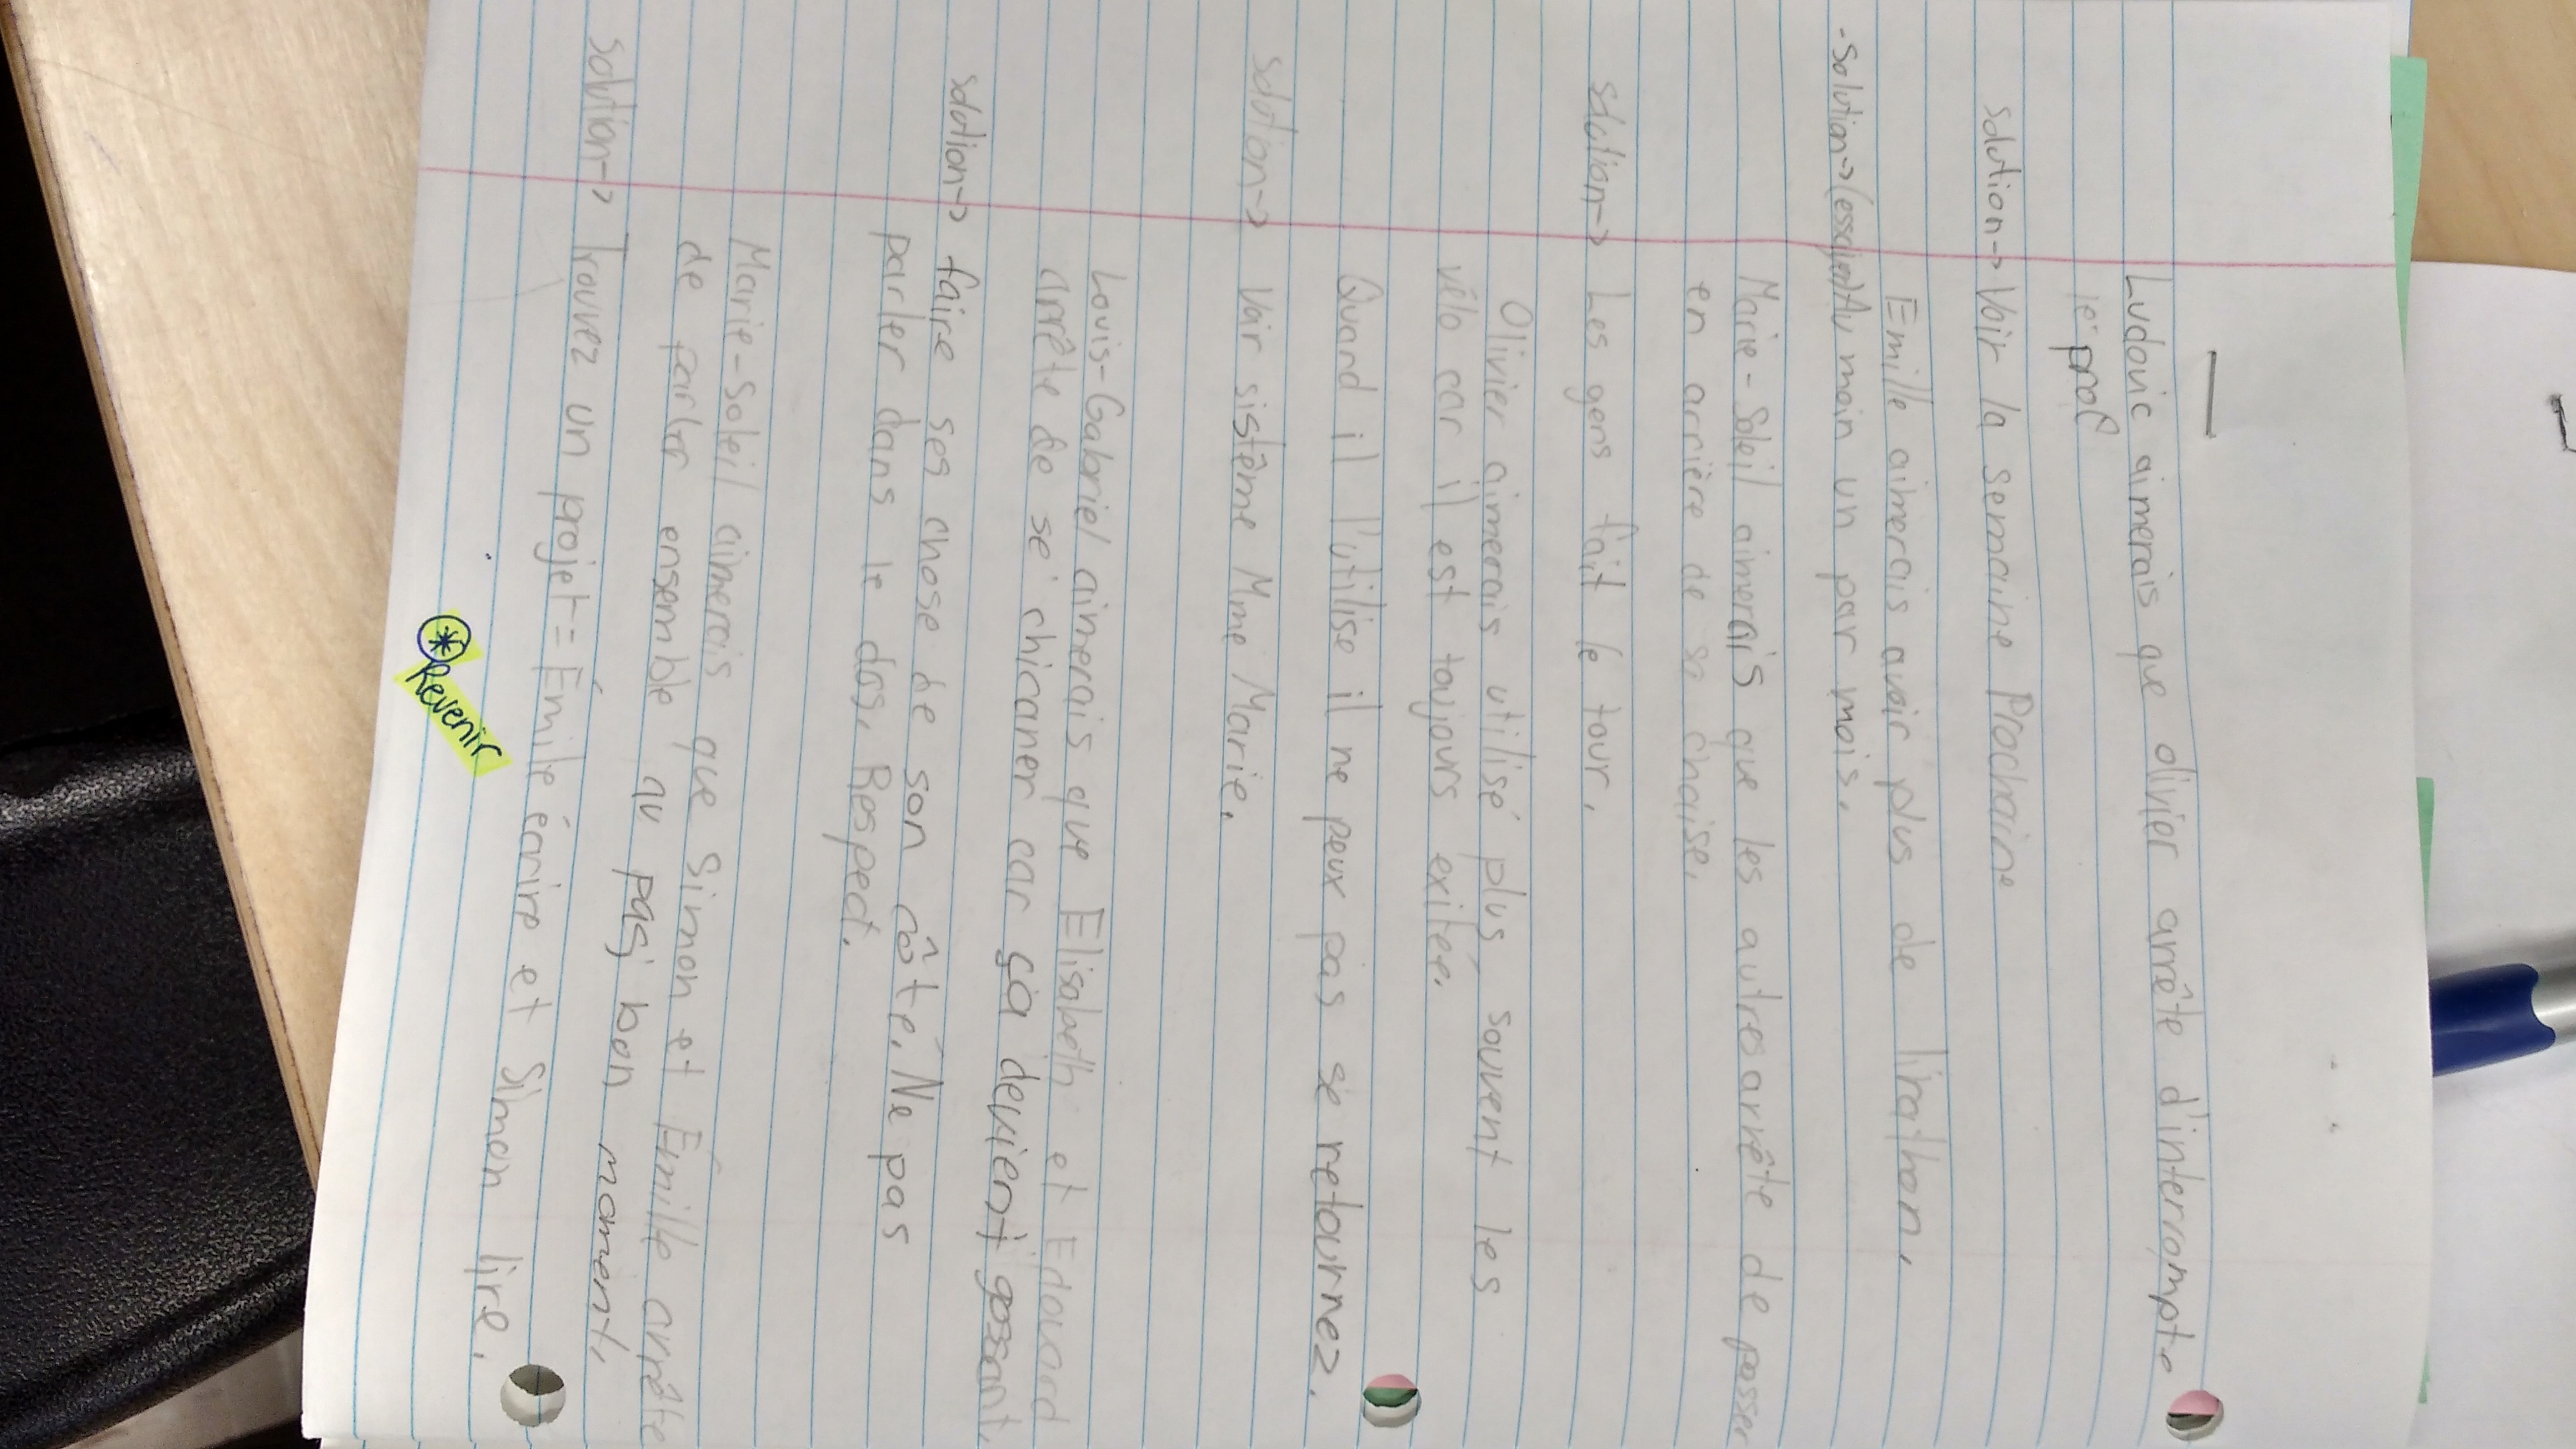 Ludovic aimerais que olivier arrête d'interrompte
le prof
solution→ Voir la semaine Prochaine
Emille aimerais avoir plus de linathon.
-Solution→(essaient)Au moin un par mois.
Marie-Soleil aimerais que les autres arrête de passer
en arrière de sa chaise.
solution→ Les gens fait le tour.
Olivier aimerais utilisé plus souvent les
vélo car il est toujours exitée.
Quand il l'utilise il ne peux pas se retournez.
solution→ Voir sistème Mme Marie.
Louis-Gabriel aimerais que Elisabeth et Edouard
arrête de se chicaner car ça devient gossant.
solution→ faire ses chose de son côté. Ne pas
parler dans le dos. Respect.
Marie-Soleil aimerais que Simon et Émille arrête
de parler ensemble au pas bon moment.
solution→ Trouvez un projet = Émile écrire et Simon lire.
* Revenir